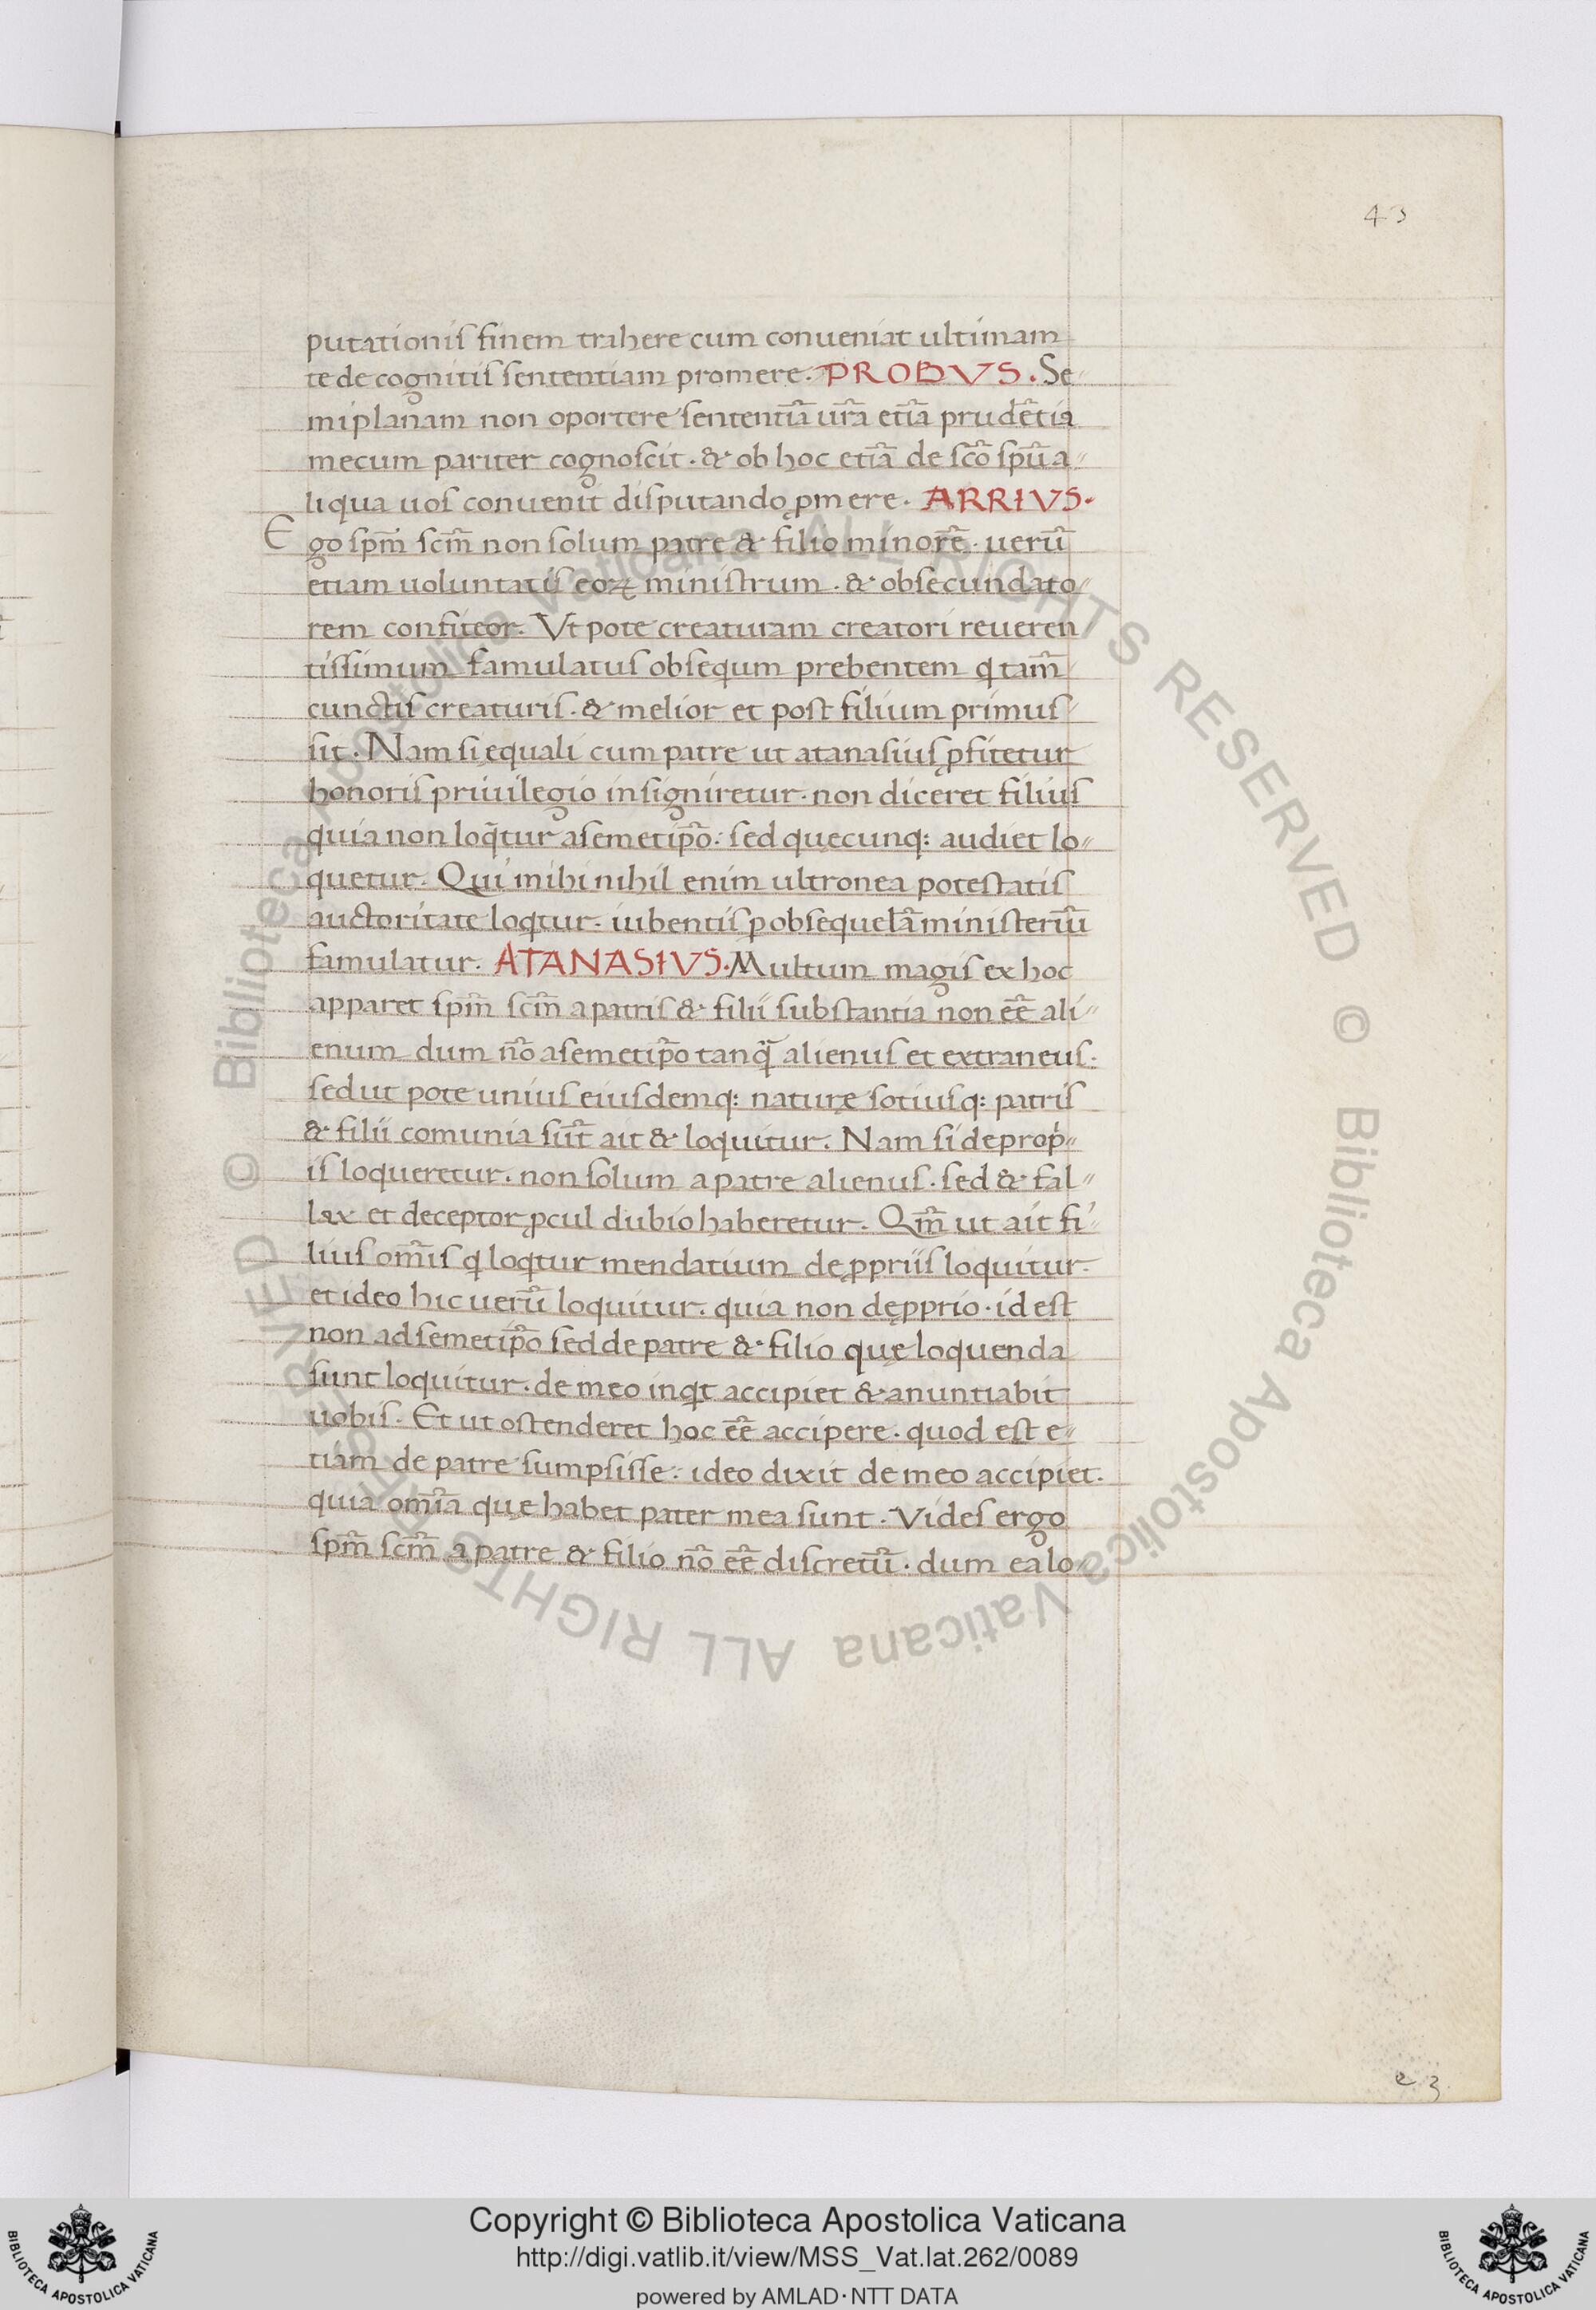 43
putationis finem trahere cum conueniat ultimam
te de cognitis sententiam promere. PROBVS. Se
miplanam non oportere sententiā ur̄a etiā prudētia
mecum pariter cognoscit. & ob hoc etiā de sc̄o sp̄u a-
liqua uos conuenit disputando ꝓmere. ARRIVS.
Ego sp̄m sc̄m non solum patre & filio minorē. uerū
etiam uoluntatis eoꝝ ministrum. & obsecundato-
rem confiteor. Vt pote creaturam creatori reueren
tissimum famulatus obsequm prebentem q tam̄
cunctis creaturis. & melior et post filium primus
sit. Nam si equali cum patre ut atanasius ꝓfitetur
honoris priuilegio insigniretur. non diceret filius
quia non loq̄tur asemetip̄o. sed quęcunq: audiet lo-
quetur. Qui mihi nihil enim ultronea potestatis
auctoritate loqtur. iubentis p obsequelā ministeriū
famulatur. ATANASIVS. Multum magis ex hoc
apparet sp̄m sc̄m a patris & filii substantia non eē ali-
enum dum nō asemetip̄o tanq̄ alienus et extraneus.
sed ut pote unius eiusdemq: naturę sotiusq: patris
& filii comunia sūt ait & loquitur. Nam si de prop-
is loqueretur. non solum a patre alienus. sed & fal-
lax et deceptor ꝓcul dubio haberetur. Qm̄ ut ait fi-
lius om̄is q loqtur mendatium de ꝓpriis loquitur.
et ideo hic uerū loquitur. quia non de ꝓprio. id est
non ad semetip̄o sed de patre & filio quę loquenda
sunt loquitur. de meo inqt accipiet & anuntiabit
uobis. Et ut ostenderet hoc eē accipere. quod est e-
tiam de patre sumpsisse. ideo dixit de meo accipiet.
quia om̄ia quę habet pater mea sunt. Vides ergo
sp̄m sc̄m a patre & filio nō eē discretū. dum ea lo-
e 3
© Biblioteca Apostolica Vaticana ALL RIGHTS RESERVED © Biblioteca Apostolica Vaticana ALL RIGHTS RESERVED
Copyright © Biblioteca Apostolica Vaticana
http://digi.vatlib.it/view/MSS_Vat.lat.262/0089
powered by AMLAD·NTT DATA
BIBLIOTECA APOSTOLICA VATICANA
BIBLIOTECA APOSTOLICA VATICANA